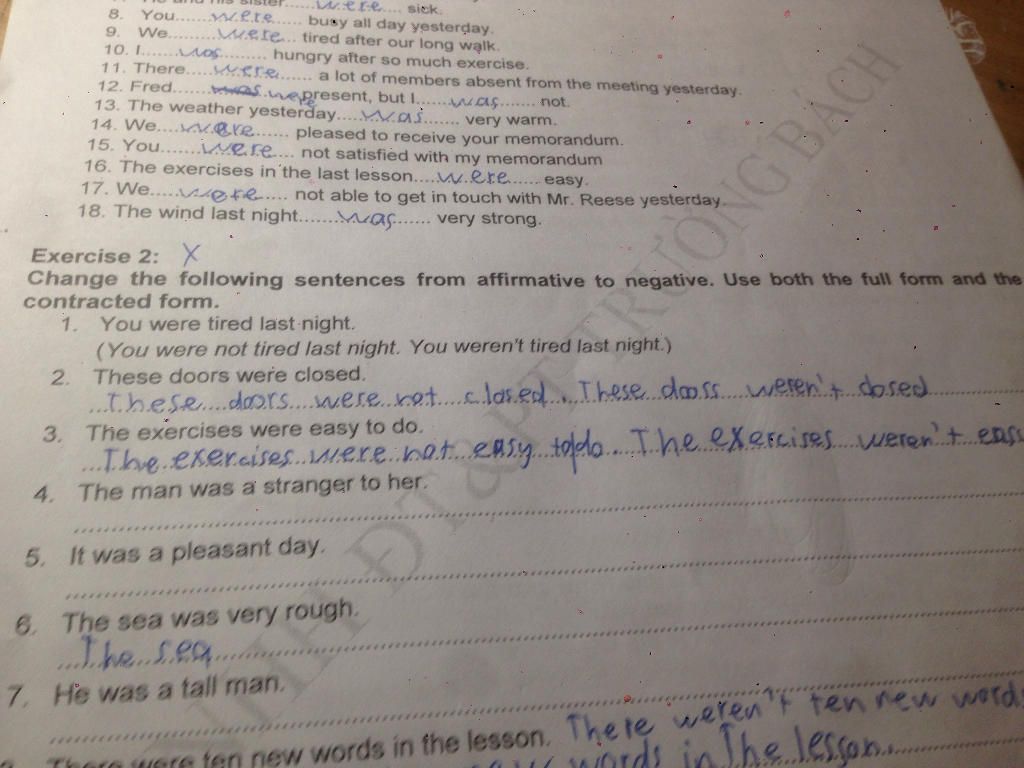 his sister......were.... sick.
8. You.....were.... busy all day yesterday.
9. We.........were... tired after our long walk.
10. I......was......... hungry after so much exercise.
11. There.....were...... a lot of members absent from the meeting yesterday.
12. Fred....... present, but I......was....... not.
13. The weather yesterday....was....... very warm.
14. We....were...... pleased to receive your memorandum.
15. You.......were.... not satisfied with my memorandum
16. The exercises in the last lesson....were...... easy.
17. We.....were..... not able to get in touch with Mr. Reese yesterday.
18. The wind last night.......was....... very strong.
Exercise 2: X
Change the following sentences from affirmative to negative. Use both the full form and the
contracted form.
1. You were tired last night.
(You were not tired last night. You weren't tired last night.)
2. These doors were closed.
These doors were not closed. These doors weren't closed
3. The exercises were easy to do.
The exercises were not easy to do. The exercises weren't easy
4. The man was a stranger to her.
5. It was a pleasant day.
6. The sea was very rough.
The sea
7. He was a tall man.
There were ten new words in the lesson. There weren't ten new words
words in the lesson.
ĐT & PT TRƯỜNG BÁCH